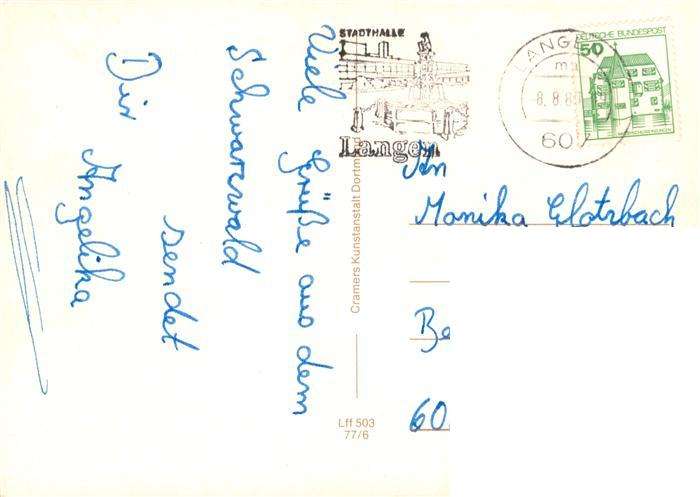 Viele Grüße aus dem
Schwarzwald
sendet
Dir Angelika
STADTHALLE
Langen
LANGEN
m
-8.8.8
60
DEUTSCHE BUNDESPOST
50
An
Monika Clotzbach
Be
60
Cramers Kunstanstalt Dortm
Lff 503
77/6